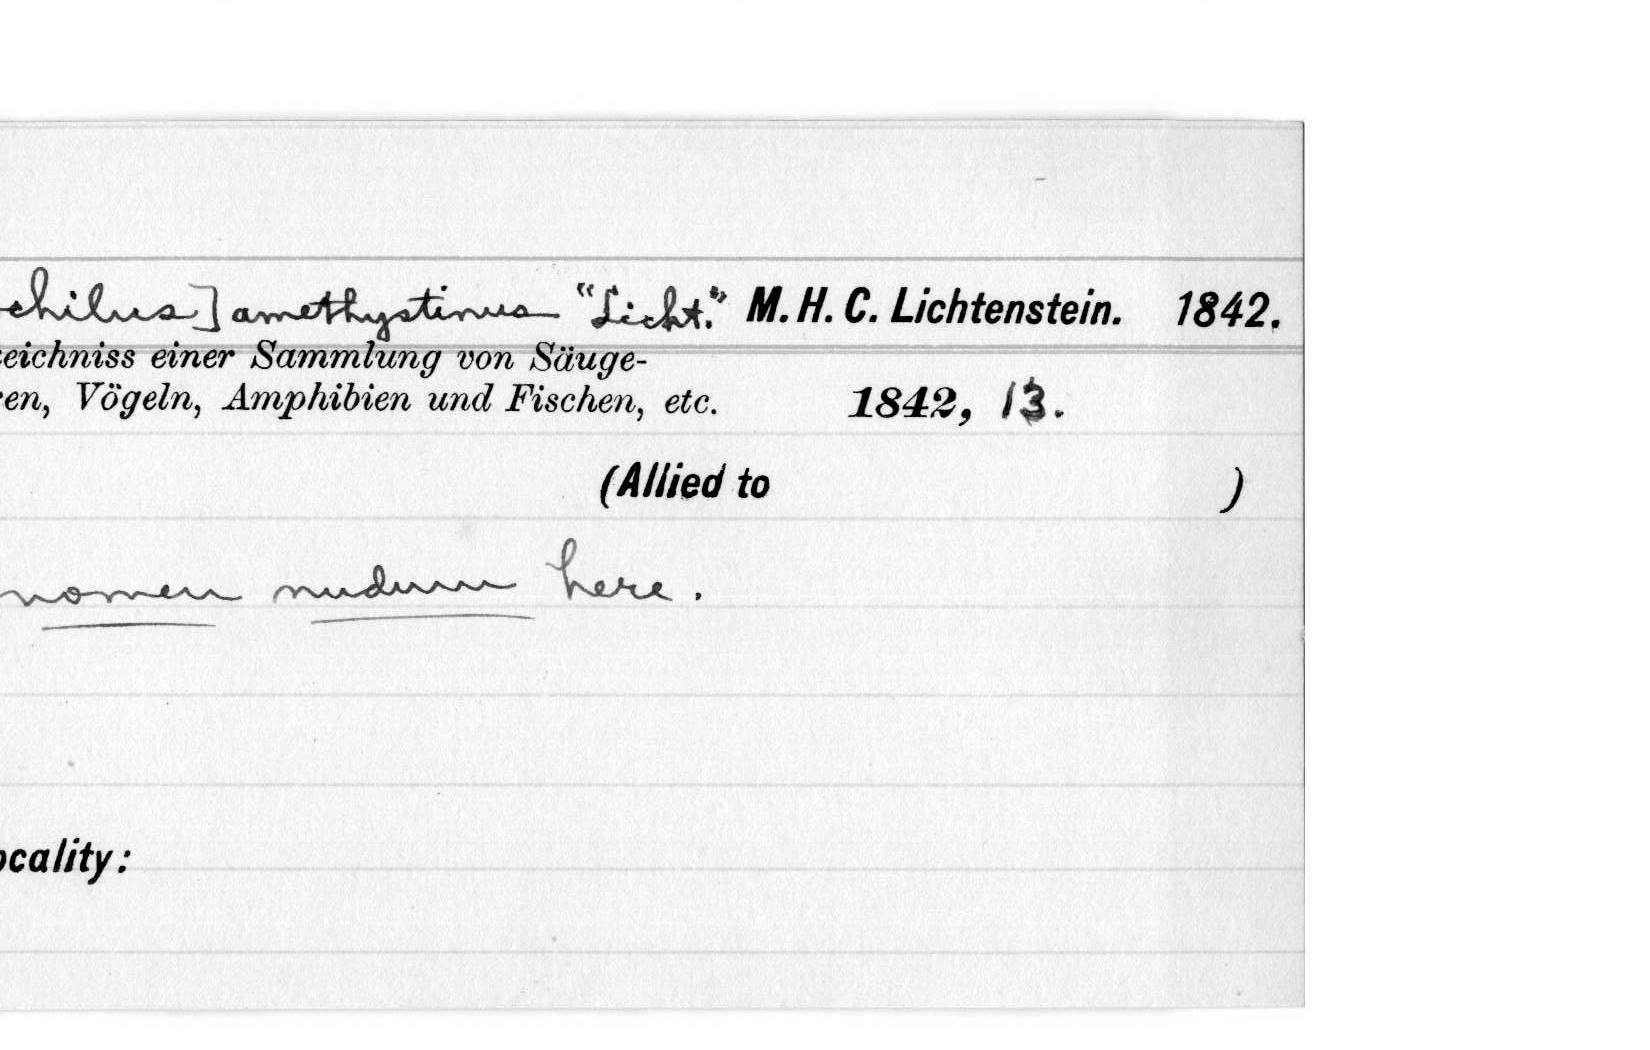 chilus] amethystinus "Licht." M. H. C. Lichtenstein. 1842.
eichniss einer Sammlung von Säuge-
en, Vögeln, Amphibien und Fischen, etc. 1842, 13.
(Allied to )
nomen nudum here.
ocality: